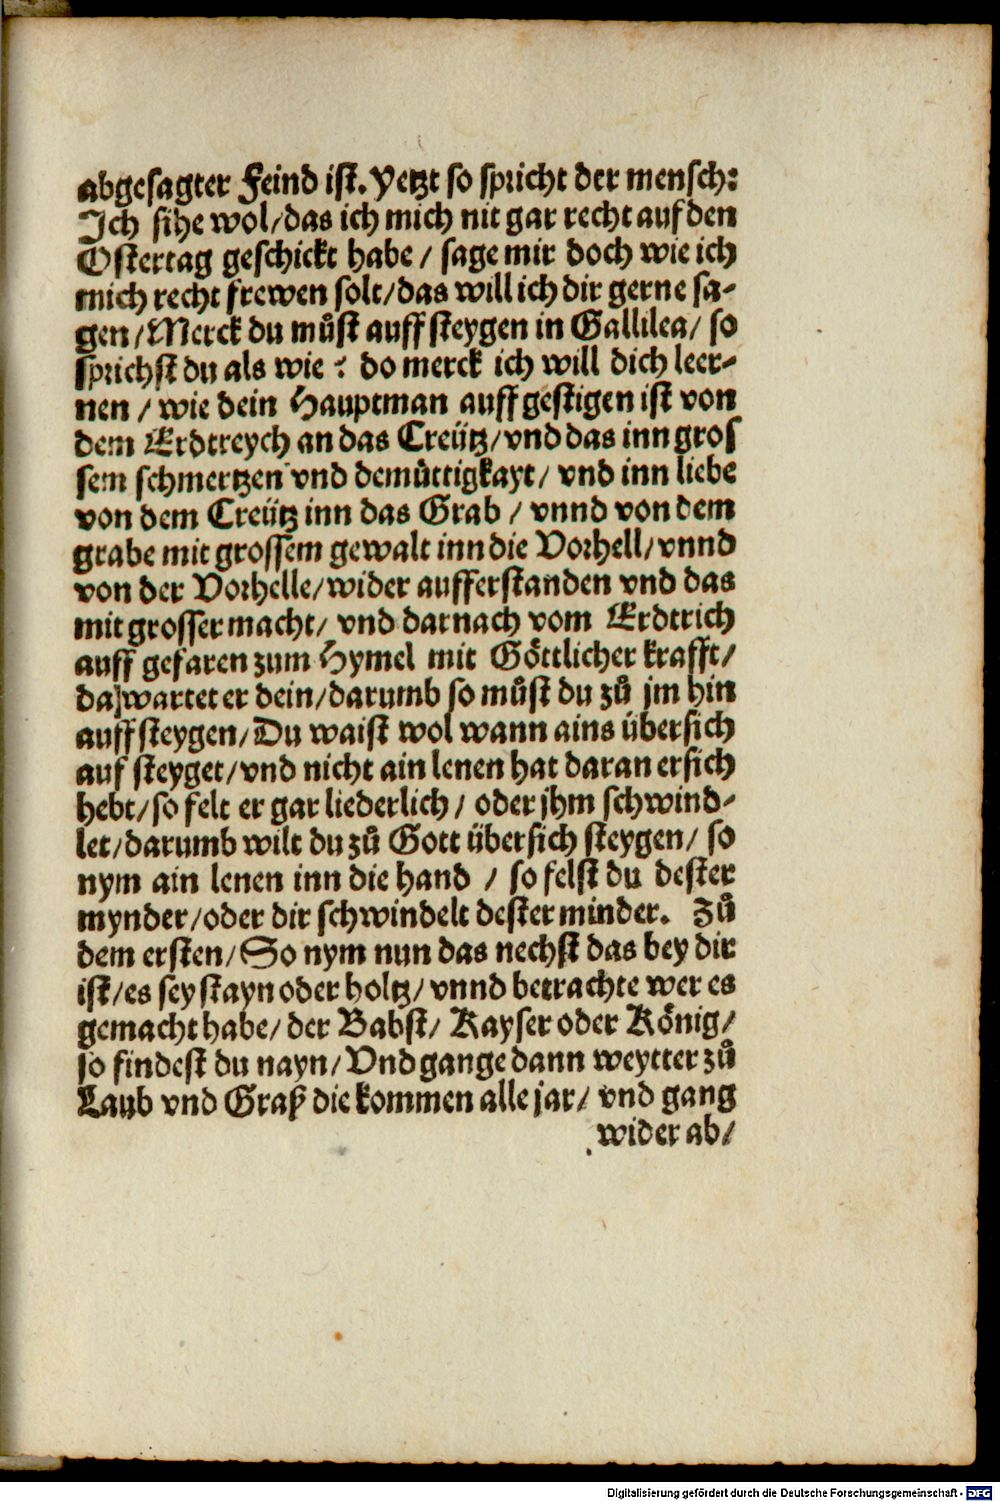 abgesagter Feind ist. Yetzt so spricht der mensch:
Ich sihe wol/ das ich mich nit gar recht auf den
Ostertag geschickt habe / sage mir doch wie ich
mich recht frewen solt/ das will ich dir gerne sa-
gen/ Merck du můst auff steygen in Gallilea/ so
sprichst du als wie ? do merck ich will dich leer-
nen / wie dein Hauptman auff gestigen ist von
dem Erdtreych an das Creütz/ vnd das inn gros
sem schmertzen vnd demůttigkayt/ vnd inn liebe
von dem Creütz inn das Grab / vnnd von dem
grabe mit grossem gewalt inn die Vorhell/ vnnd
von der Vorhelle/ wider aufferstanden vnd das
mit grosser macht/ vnd darnach vom Erdtrich
auff gefaren zum Hymel mit Göttlicher krafft/
da wartet er dein/ darumb so můst du zů jm hin
auff steygen/ Du waist wol wann ains übersich
auf steyget/ vnd nicht ain lenen hat daran er sich
hebt/ so felt er gar liederlich/ oder jhm schwind-
let/ darumb wilt du zů Gott übersich steygen/ so
nym ain lenen inn die hand / so felst du dester
mynder/ oder dir schwindelt dester minder. Zů
dem ersten/ So nym nun das nechst das bey dir
ist/ es sey stayn oder holtz/ vnnd betrachte wer es
gemacht habe/ der Babst/ Kayser oder König/
so findest du nayn/ Vnd gange dann weytter zů
Laub vnd Graß die kommen alle jar/ vnd gang
wider ab/
Digitalisierung gefördert durch die Deutsche Forschungsgemeinschaft - DFG